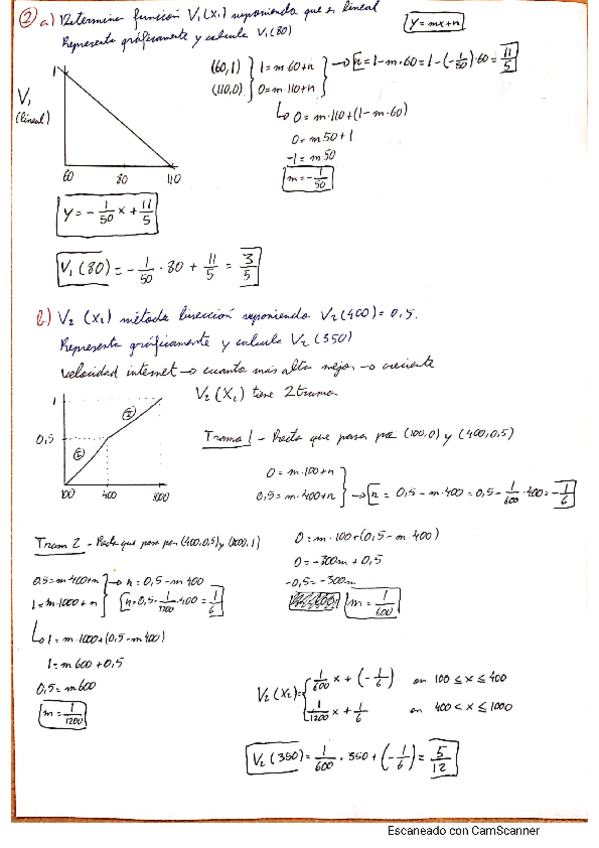 ② a) Determina función V₁(X₁) suponiendo que es lineal
Representa gráficamente y calcula V₁(80)
y = mx+n
V₁
(lineal)
1
60 80 110
(60,1) } 1 = m·60+n
(110,0) } 0 = m·110+n
→ n = 1-m·60 = 1-(-1/50)·60 = 11/5
↳ 0 = m·110+(1-m·60)
0 = m50+1
-1 = m50
m = -1/50
y = -1/50 x + 11/5
V₁(80) = -1/50 · 80 + 11/5 = 3/5
b) V₂ (X₂) método bisección suponiendo V₂(400) = 0,5.
Representa gráficamente y calcula V₂(350)
velocidad internet → cuanto más alta mejor → creciente
V₂(X₂) tiene 2 tramos
1
0,5
① ②
100 400 1000
Tramo 1 - Recta que pasa por (100,0) y (400,0,5)
0 = m·100+n
0,5 = m·400+n
→ n = 0,5-m·400 = 0,5-1/600·400 = -1/6
0 = m·100+(0,5-m·400)
0 = -300m+0,5
-0,5 = -300m
m = 1/600
Tramo 2 - Recta que pasa por (400,0,5) y (1000,1)
0,5 = m·400+n → n = 0,5-m·400
1 = m·1000+n n = 0,5-1/1200·400 = 1/6
↳ 1 = m·1000+(0,5-m400)
1 = m600+0,5
0,5 = m600
m = 1/1200
V₂(X₂) = { 1/600 x + (-1/6) en 100 ≤ x ≤ 400
1/1200 x + 1/6 en 400 < x ≤ 1000
V₂(350) = 1/600 · 350 + (-1/6) = 5/12
Escaneado con CamScanner